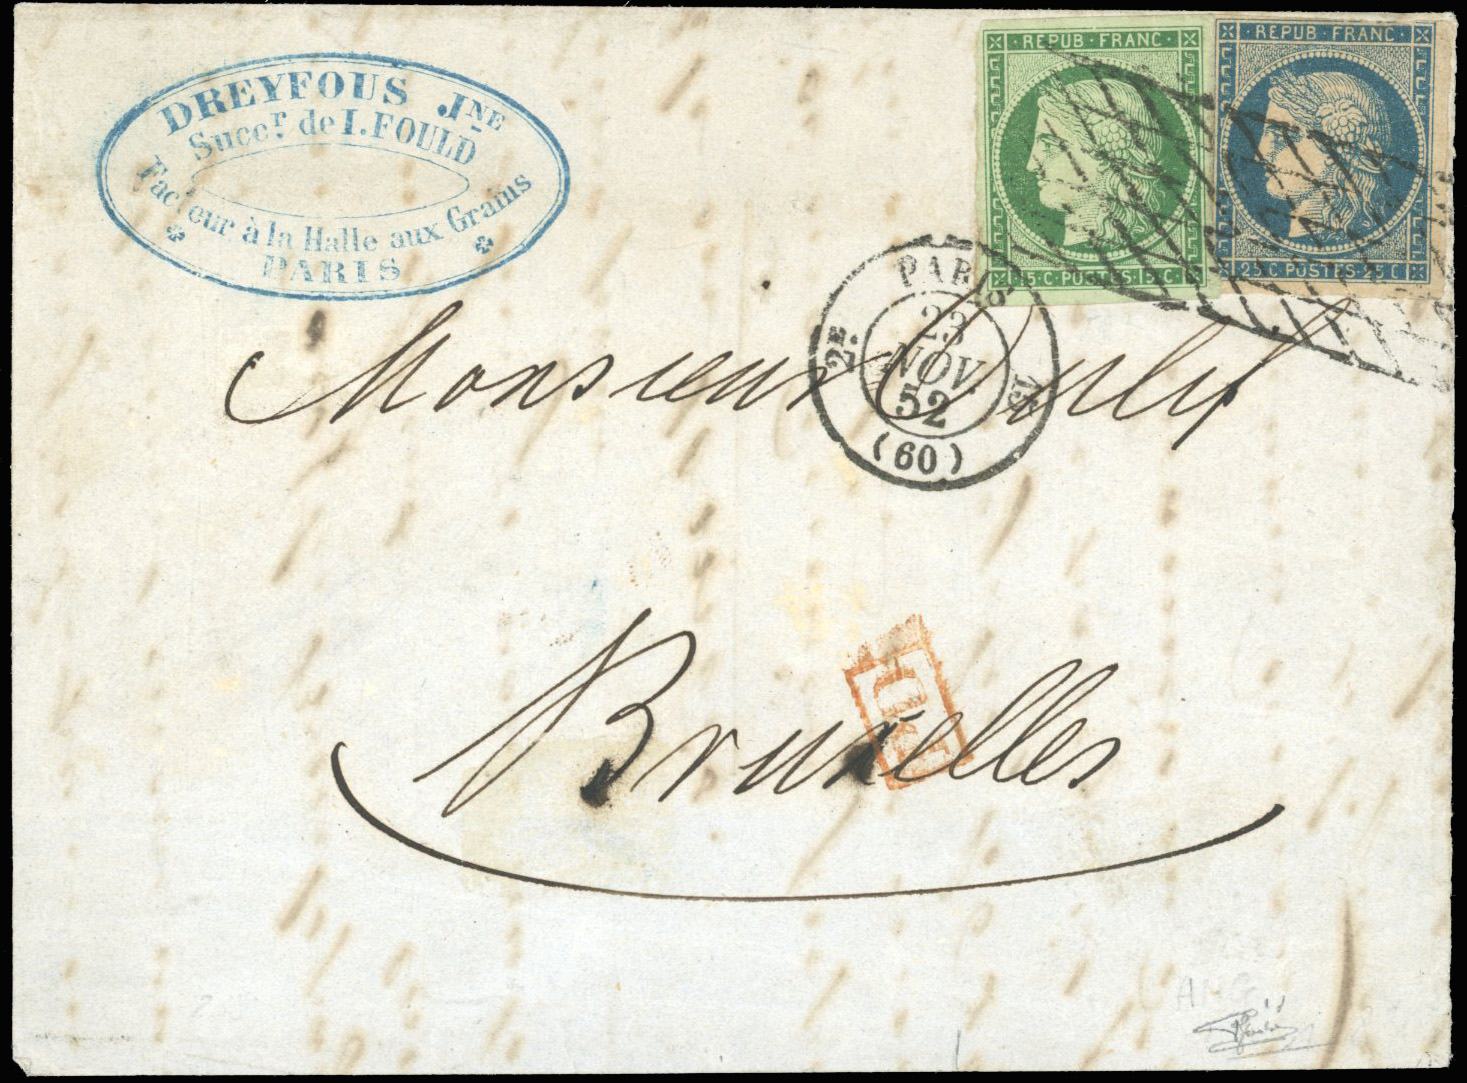 DREYFOUS Jne
Succr. de I. FOULD
Facteur à la Halle aux Grains
PARIS
REPUB·FRANC·
15·C·POSTES·15·C
REPUB·FRANC·
25·C·POSTES·25·C
PARIS
2E
23
NOV.
52
(60)
Monsieur
Bruxelles
P.D.